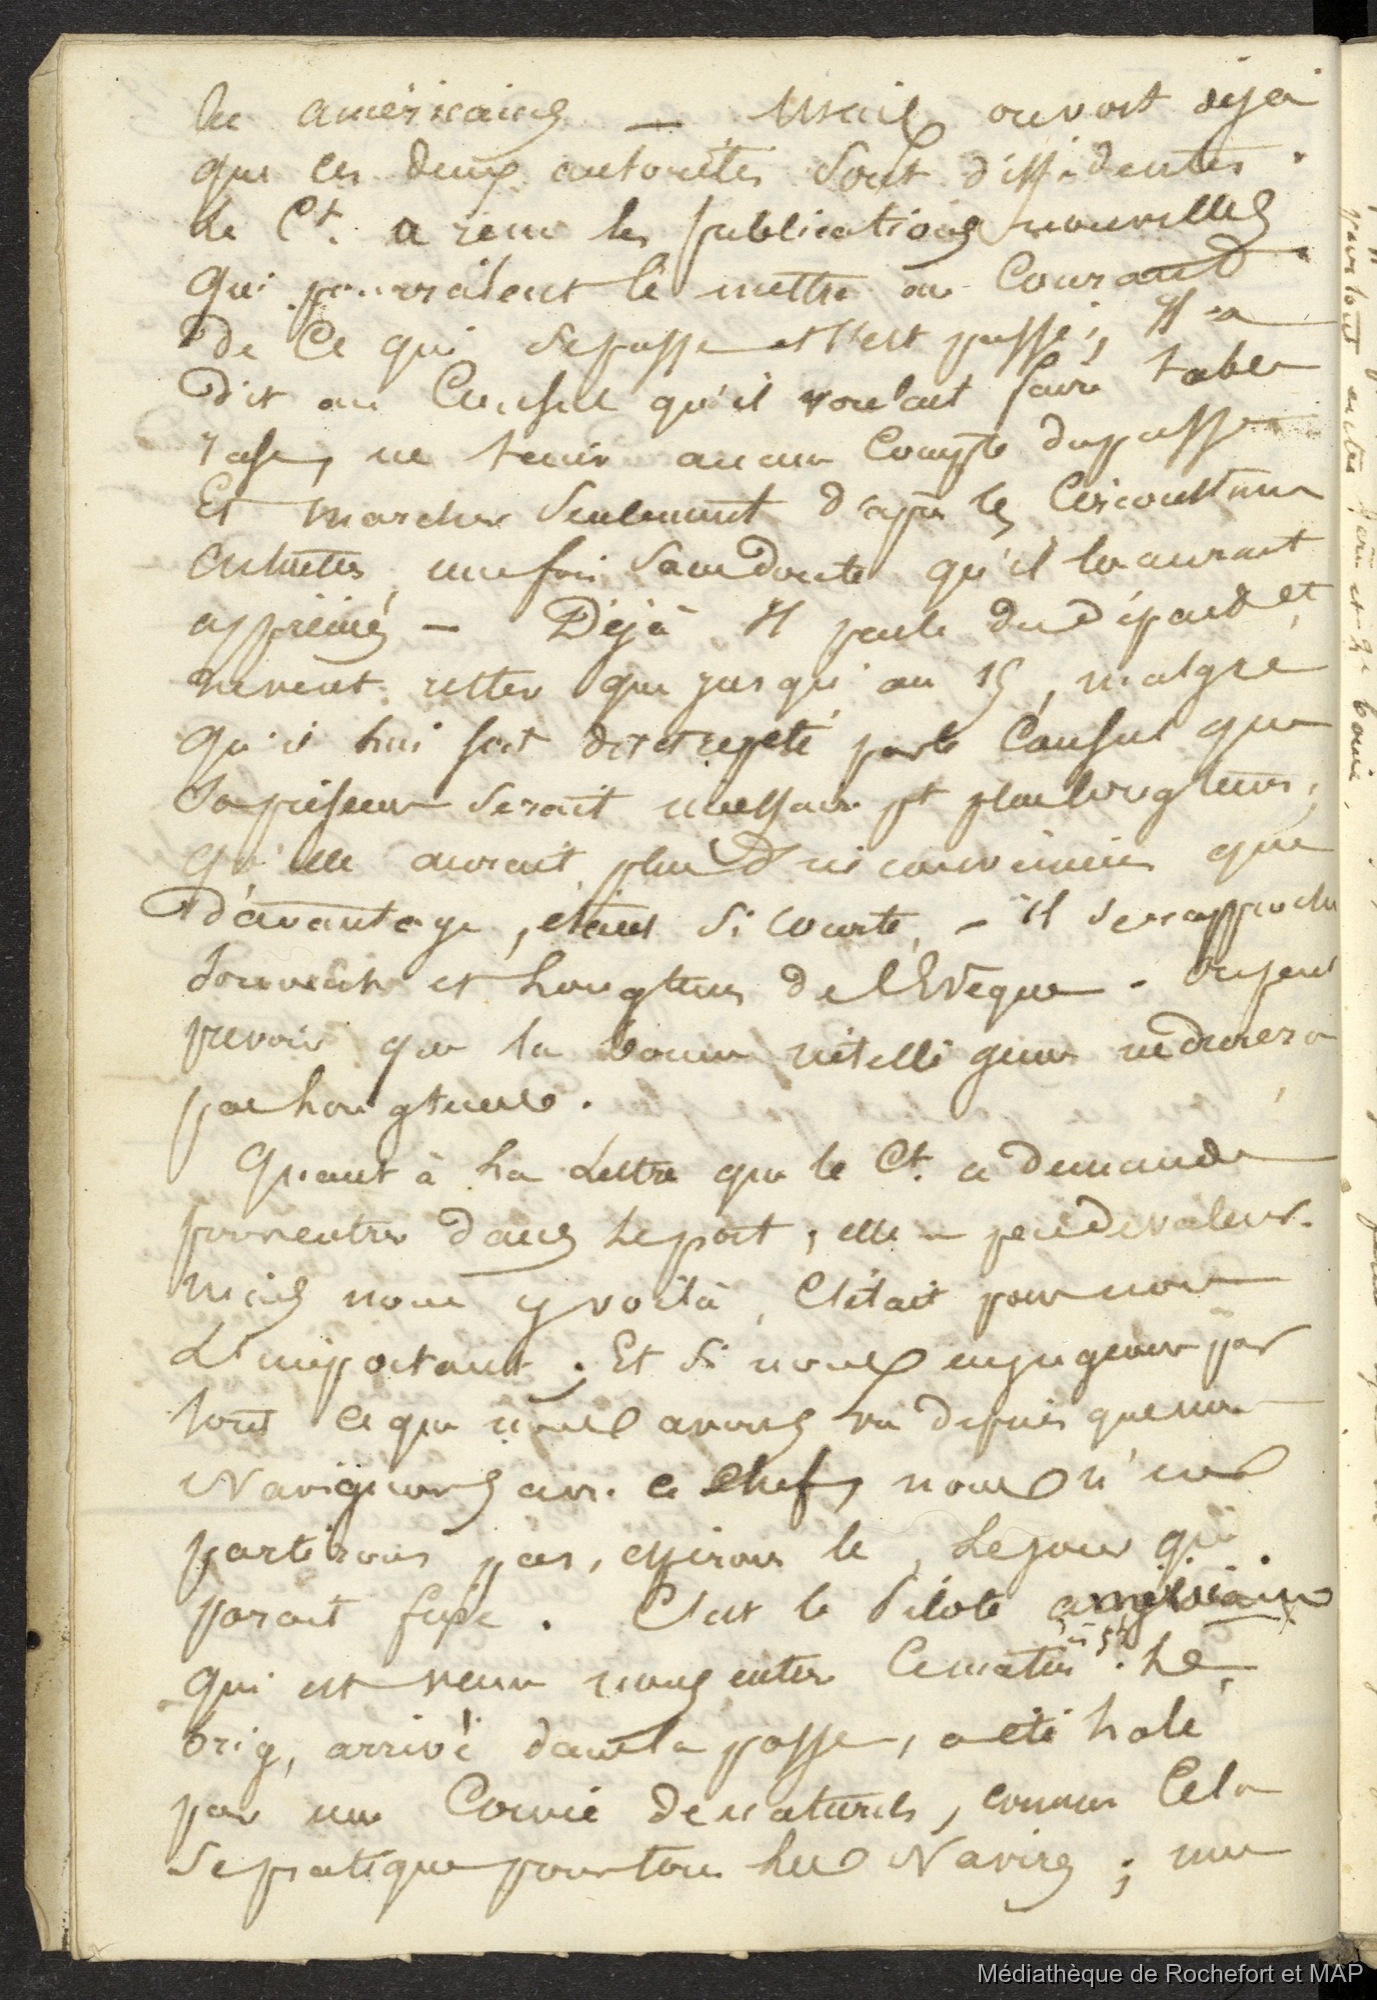 les américains — Mais on voit déjà
que ces deux autorités sont dissidentes.
Le Ct. a reçu les publications nouvelles
qui pourraient le mettre au courant
de ce qui se passe et s'est passé; Il a
dit au Consul qu'il voulait faire table
rase, ne tenir aucun compte du passé
Et marcher seulement d'après les circonstances
actuelles, une fois sans doute qu'il les aurait
appréciés — Déjà Il parle du départ et
ne veut rester que jusqu'au 15, malgré
qu'il lui soit dit et répété par le Consul que
sa présence serait nécessaire pt plus longtems,
qu'elle aurait plus d'inconvéniens que
d'avantage, étant si courte. — il se rapproche
souvent et longtems de l'Evêque. On peut
prevoir que la bonne intelligence ne durera
pas longtems.
Quant à la Lettre que le Ct. a demandée
pour entrer dans le port; elle a peu de valeur.
mais nous y voilà, C'était pour nous
L'important; Et si nous en jugeons par
tout ce que nous avons vu depuis que nous
Navigeons avec ce chef, nous n'en
partirons pas, espérons le, le jour qui
parait fixé. C'est le Pilote américain
qui est venu nous entrer ce matin. Le
brig, arrivé dans la passe, a été halé
par une Corvée de naturels, comme cela
se pratique pour tous les Navires; une
partout
Médiathèque de Rochefort et MAP